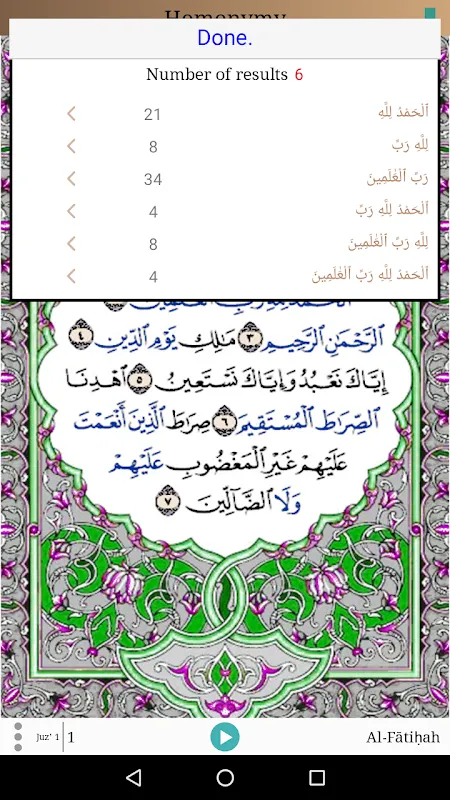 Homonymy
Done.
Number of results 6
ٱلْحَمْدُ لِلَّهِ 21
لِلَّهِ رَبِّ 8
رَبِّ ٱلْعَٰلَمِينَ 34
ٱلْحَمْدُ لِلَّهِ رَبِّ 4
لِلَّهِ رَبِّ ٱلْعَٰلَمِينَ 8
ٱلْحَمْدُ لِلَّهِ رَبِّ ٱلْعَٰلَمِينَ 4
ٱلرَّحْمَٰنِ ٱلرَّحِيمِ ٣ مَٰلِكِ يَوْمِ ٱلدِّينِ ٤
إِيَّاكَ نَعْبُدُ وَإِيَّاكَ نَسْتَعِينُ ٥ ٱهْدِنَا
ٱلصِّرَٰطَ ٱلْمُسْتَقِيمَ ٦ صِرَٰطَ ٱلَّذِينَ أَنْعَمْتَ
عَلَيْهِمْ غَيْرِ ٱلْمَغْضُوبِ عَلَيْهِمْ
وَلَا ٱلضَّآلِّينَ ٧
Juz' 1 1 Al-Fātiḥah